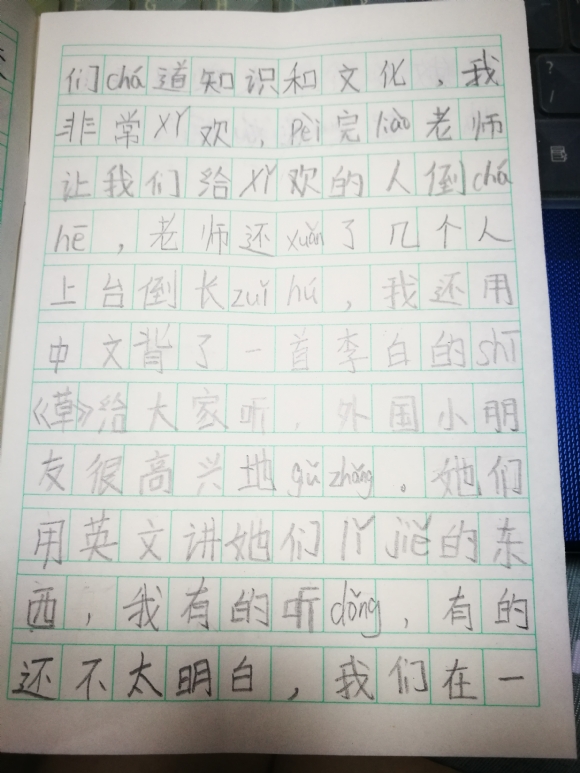 们chá道知识和文化，我
非常xǐ欢，pèi完liào老师
让我们给xǐ欢的人倒chá
hē，老师还xuǎn了几个人
上台倒长zuǐ hú，我还用
中文背了一首李白的shī
《草》给大家听，外国小朋
友很高兴地gǔ zhǎng。她们
用英文讲她们lǐ jiě的东
西，我有的听dǒng，有的
还不太明白，我们在一